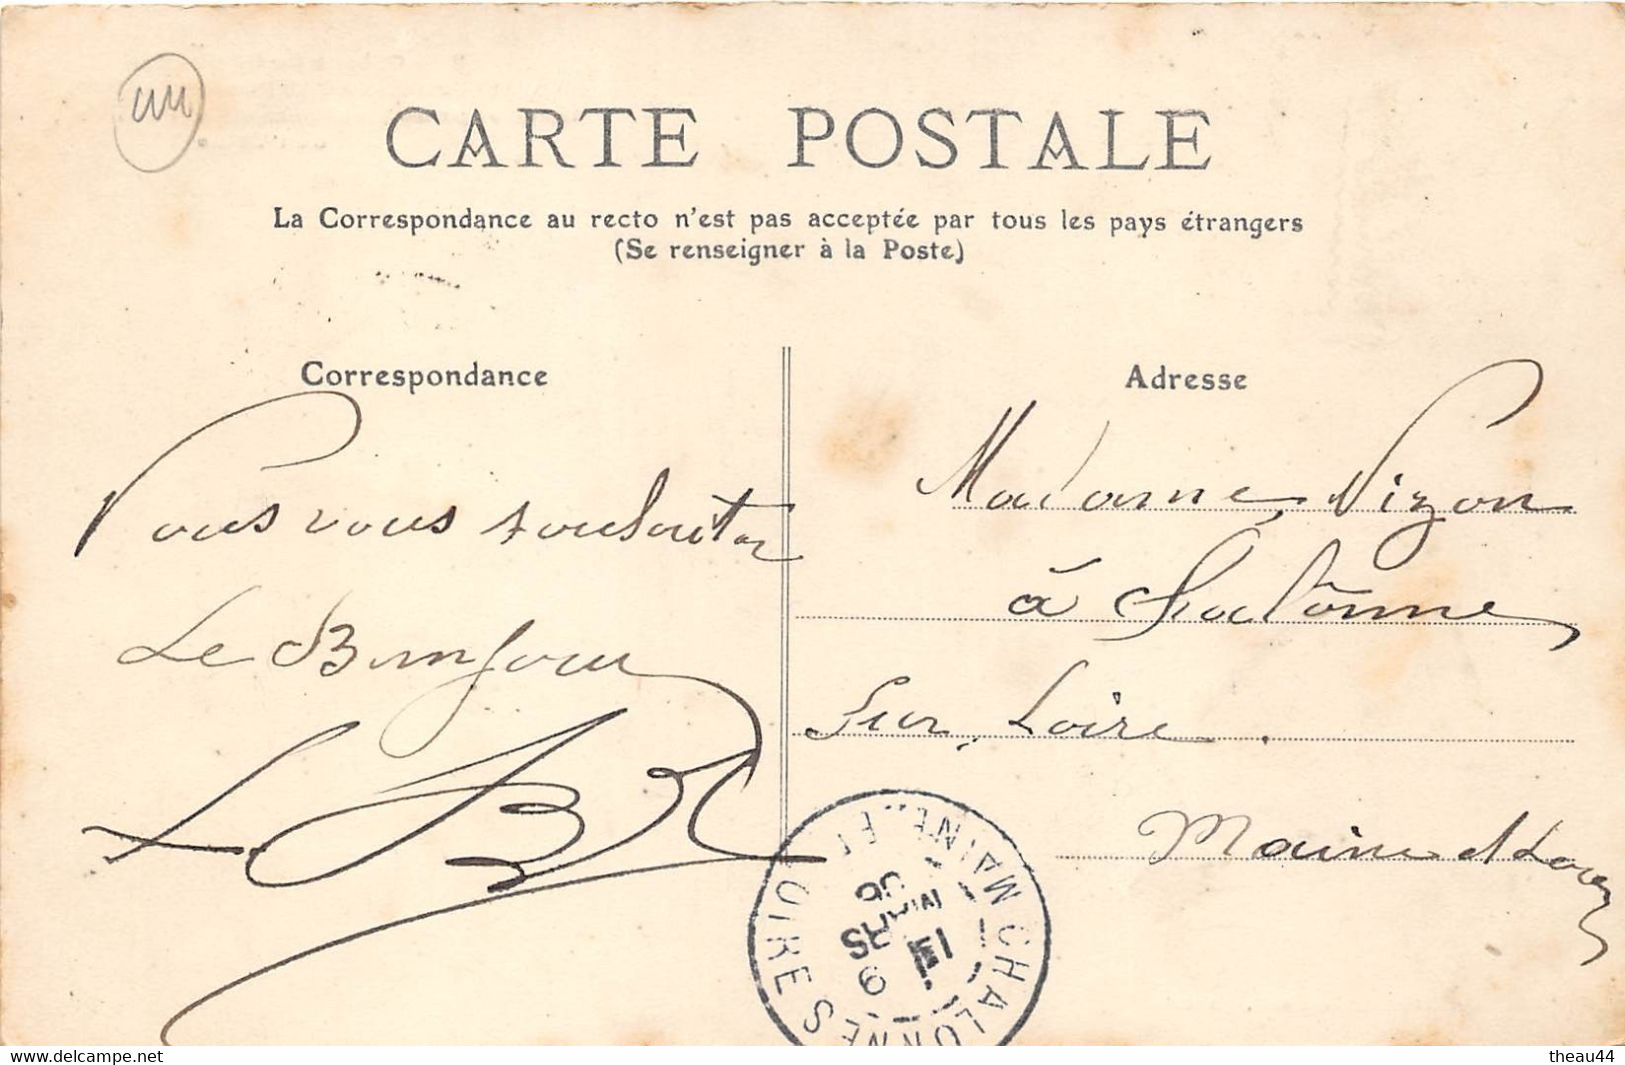 44
CARTE POSTALE
La Correspondance au recto n'est pas acceptée par tous les pays étrangers
(Se renseigner à la Poste)
Correspondance
vous
Le Bonjour
Adresse
Madame Vizon
à Chalonne
Sur Loire.
Maine et Loire
CHALONNES
MAINE-ET-LOIRE
9
MARS
06
www.delcampe.net
theau44